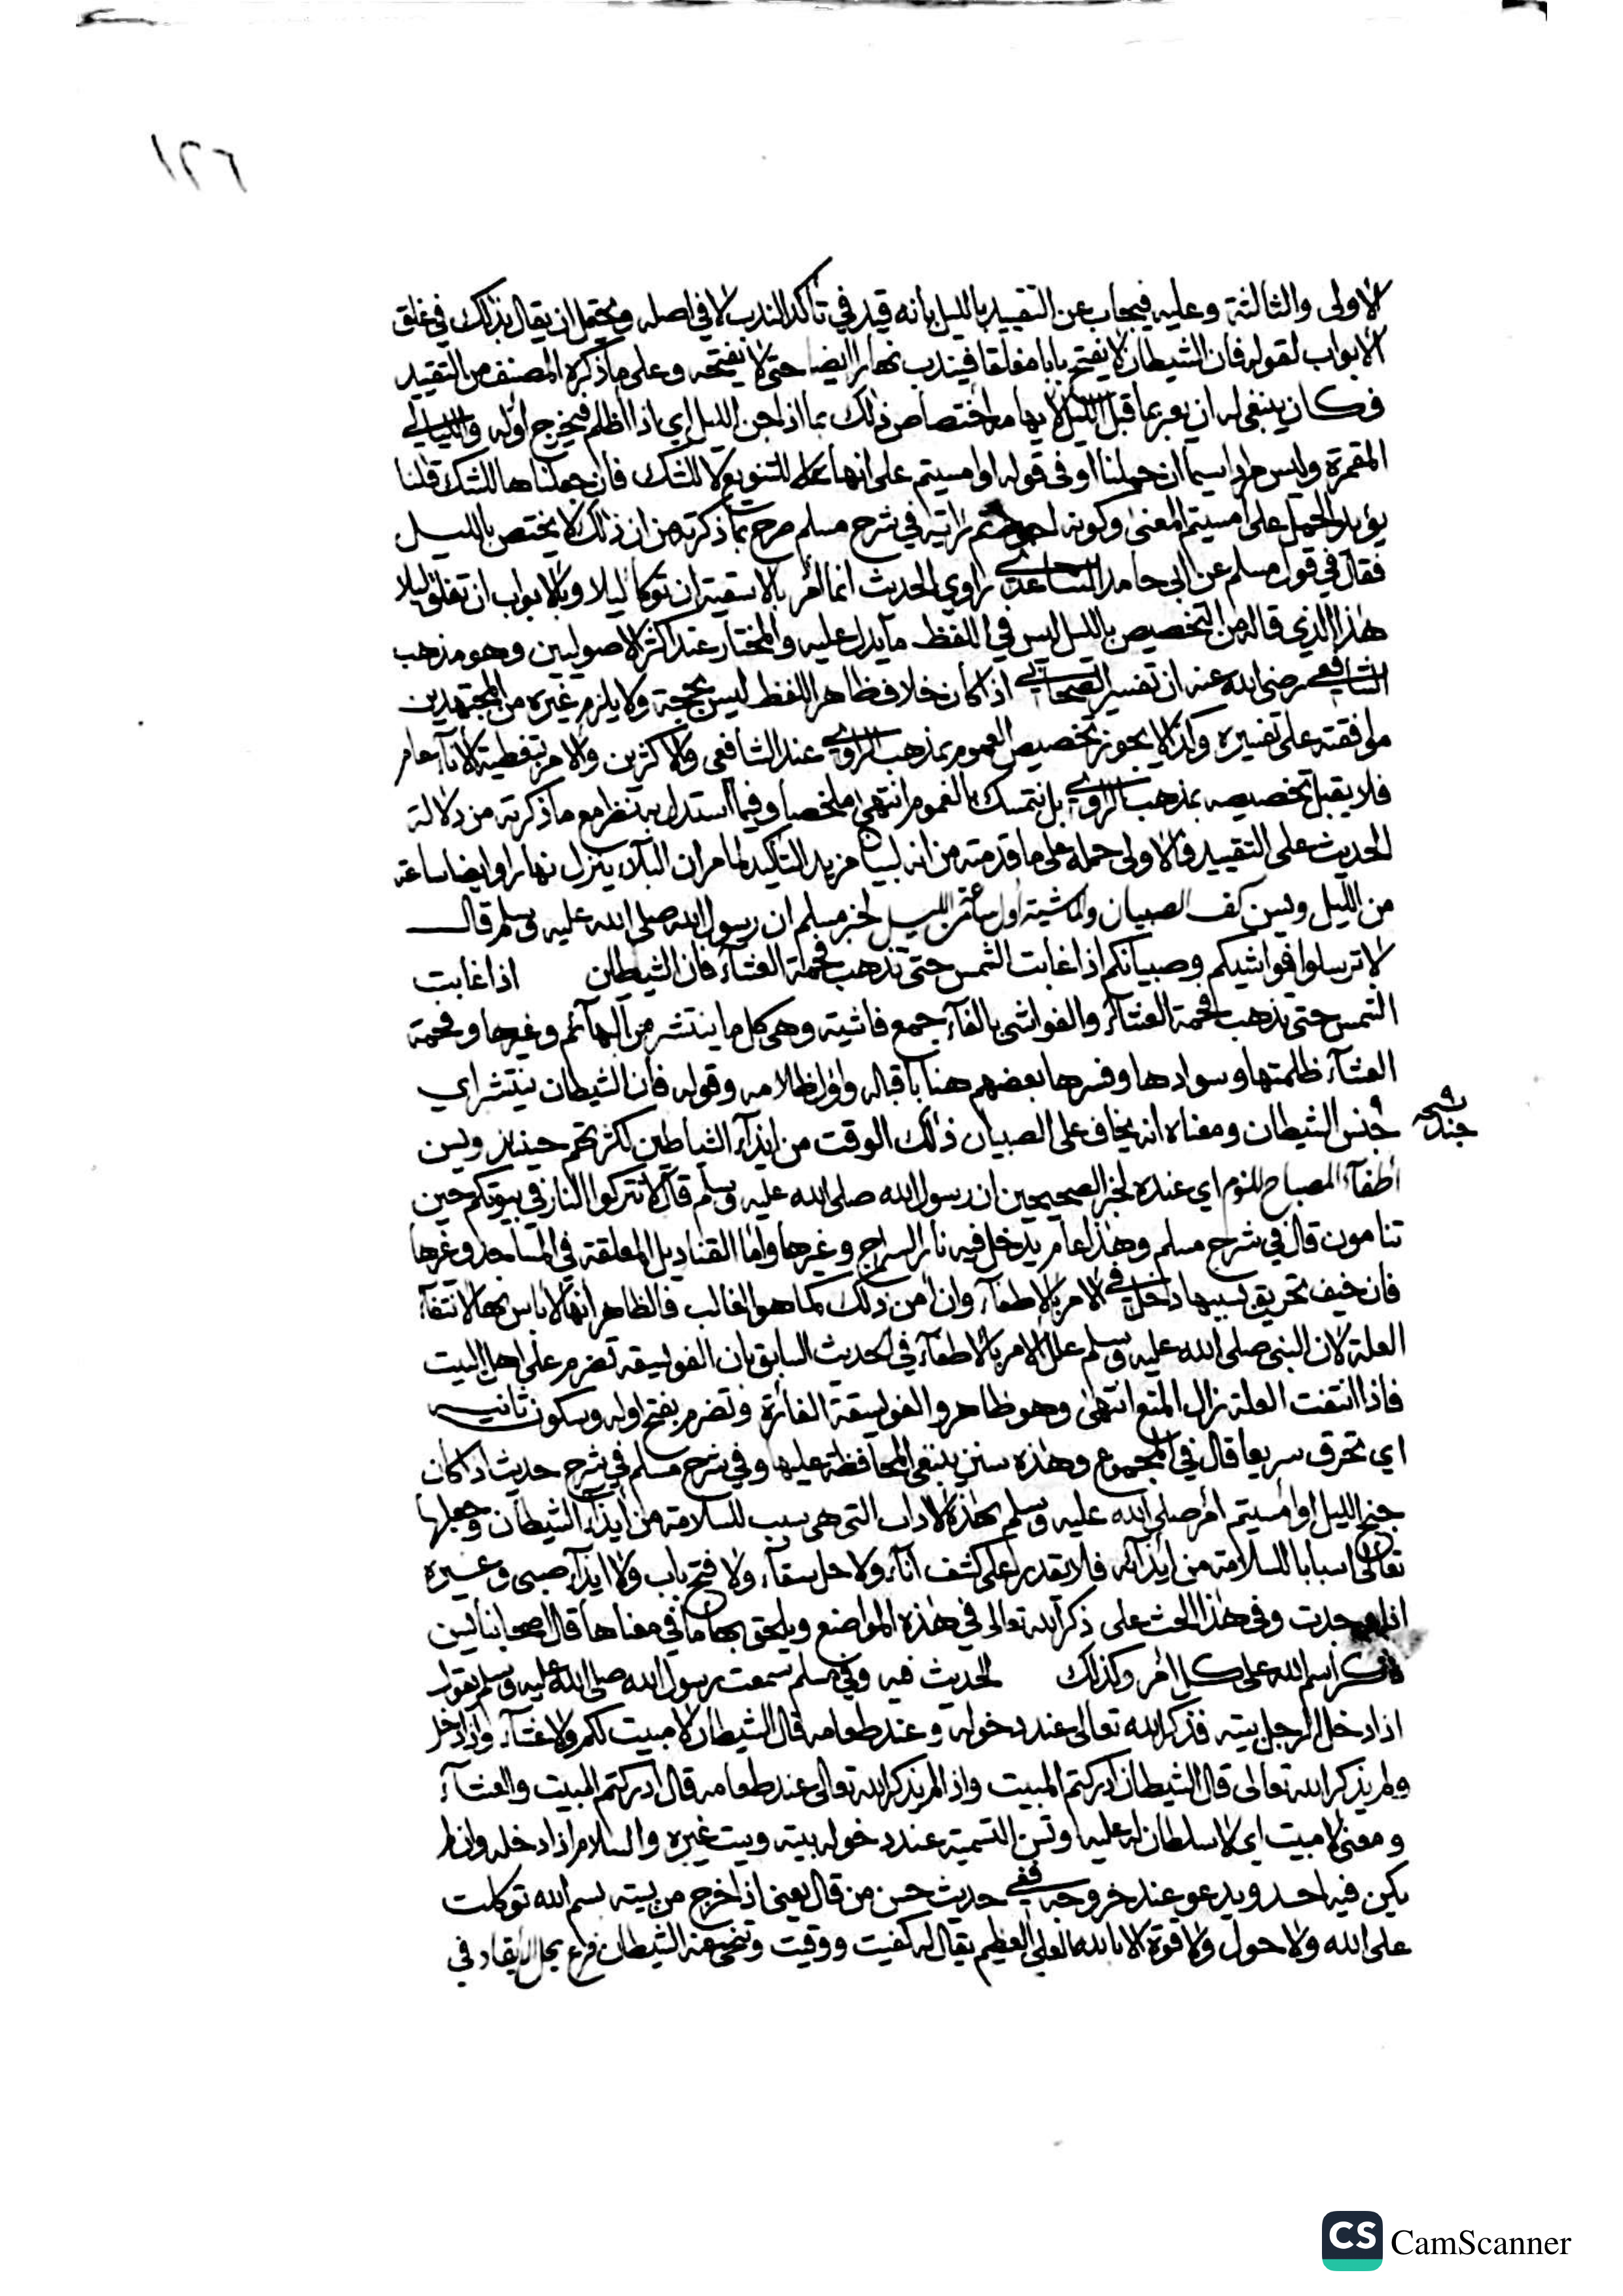 ١٢٦
الاولى والثالثة وعليه فيجاب عن التقييد بالليل بأنه قيد في تأكد الندب لا في اصله ويحتمل ان يقال بذلك في غلق
الابواب لقوله فان الشيطان لا يفتح بابا مغلقا فيندب نهارا ايضا حتى لا يفتحه وعلى ما ذكره المصنف من التقييد
فكان ينبغي له ان يعبر بما قبل الليل لايهامه اختصاص ذلك بما اذا جن الليل اي اذا اظلم فيخرج اوله والليالي
المقمرة وليس مرادا سيما ان حملنا او في قوله او امسيتم على انها للتنويع لا للشك فان جعلناها للشك قلنا
يؤيد الحمل على امسيتم المعنى وكونه احوط ثم رأيته في شرح مسلم صرح بما ذكرته من ان ذلك لا يختص بالليل
فقال في قول مسلم عن ابى حامد الساعدي راوي الحديث انما امر بالاسقية ان توكا ليلا وبالابواب ان تغلق ليلا
هذا الذي قاله من التخصيص بالليل ليس في اللفظ ما يدل عليه والمختار عند اكثر الاصوليين وهو مذهب
الشافعي رضى الله عنه ان تفسير الصحابي اذا كان خلاف ظاهر اللفظ ليس بحجة ولا يلزم غيره من المجتهدين
موافقته على تفسيره وكذا لا يجوز تخصيص العموم بمذهب الراوي عند الشافعي والاكثرين والامر بتغطية الاناء عام
فلا يقبل تخصيصه بمذهب الراوي بل نتمسك بالعموم انتهى ملخصا وفيما استدل به تنظر مع ما ذكرته من دلالة
الحديث على التقييد والاولى حمله على ما قدمته من انه لبيان مزيد التأكيد لما مر ان البلاء ينزل نهارا وايضا ساعة
من الليل ويسن كف الصبيان والماشية اول ساعة من الليل لخبر مسلم ان رسول الله صلى الله عليه وسلم قال
لا ترسلوا فواشيكم وصبيانكم اذا غابت الشمس حتى تذهب فحمة العشاء فان الشيطان اذا غابت
الشمس حتى تذهب فحمة العشاء والفواشي بالفاء جمع فاشية وهي كل ما ينتشر من البهائم وغيرها وفحمة
العشاء ظلمتها وسوادها وفسرها بعضهم هنا باقباله واول ظلامه وقوله فان الشيطان ينتشر اي
جنس الشيطان ومعناه انه يخاف على الصبيان ذلك الوقت من ايذاء الشياطين لكثرتهم حينئذ ويسن
اطفاء المصباح للنوم اي عنده لخبر الصحيحين ان رسول الله صلى الله عليه وسلم قال لا تتركوا النار في بيوتكم حين
تنامون قال في شرح مسلم وهذا عام يدخل فيه نار السراج وغيرها واما القناديل المعلقة في المساجد وغيرها
فان خيف تحريق بسببها دخلت في الامر بالاطفاء وان امن ذلك كما هو الغالب فالظاهر انها لا باس بها لانتفاء
العلة لان النبى صلى الله عليه وسلم علل الامر بالاطفاء في الحديث السابق بان الفويسقة تضرم على اهل البيت
فاذا انتفت العلة زال المنع انتهى وهو ظاهر والفويسقة الفارة وتضرم بفتح اوله وسكون ثانيه
اي تحرق سريعا قال في المجموع وهذه سنن ينبغي المحافظة عليها وفي شرح مسلم في شرح حديث اذا كان
جنح الليل او امسيتم امر صلى الله عليه وسلم بهذه الاداب التى هي سبب للسلامة من ايذاء الشيطان وجعلها
تعالى اسبابا للسلامة من ايذائه فلا يقدر على كشف اناء ولا حل سقاء ولا فتح باب ولا ايذاء صبى وغيره
اذا وجدت وفي هذا الحث على ذكر الله تعالى في هذه المواضع ويلحق بها ما في معناها قال اصحابنا يسن
ذكر اسم الله على كل امر وكذلك الحديث فيه وفي مسلم سمعت رسول الله صلى الله عليه وسلم يقول
اذا دخل الرجل بيته فذكر الله تعالى عند دخوله وعند طعامه قال الشيطان لا مبيت لكم ولا عشاء واذا دخل
ولم يذكر الله تعالى قال الشيطان ادركتم المبيت واذا لم يذكر الله تعالى عند طعامه قال ادركتم المبيت والعشاء
ومعنى لا مبيت اي لا سلطان له عليه وتسن التسمية عند دخوله بيته وبيت غيره والسلام اذا دخله وان لم
يكن فيه احد ويدعو عند خروجه ففي حديث حسن من قال يعنى اذا خرج من بيته بسم الله توكلت
على الله ولا حول ولا قوة الا بالله العلى العظيم يقال له كفيت ووقيت وتنحى عنه الشيطان فرع يحل ايقاد في
CamScanner